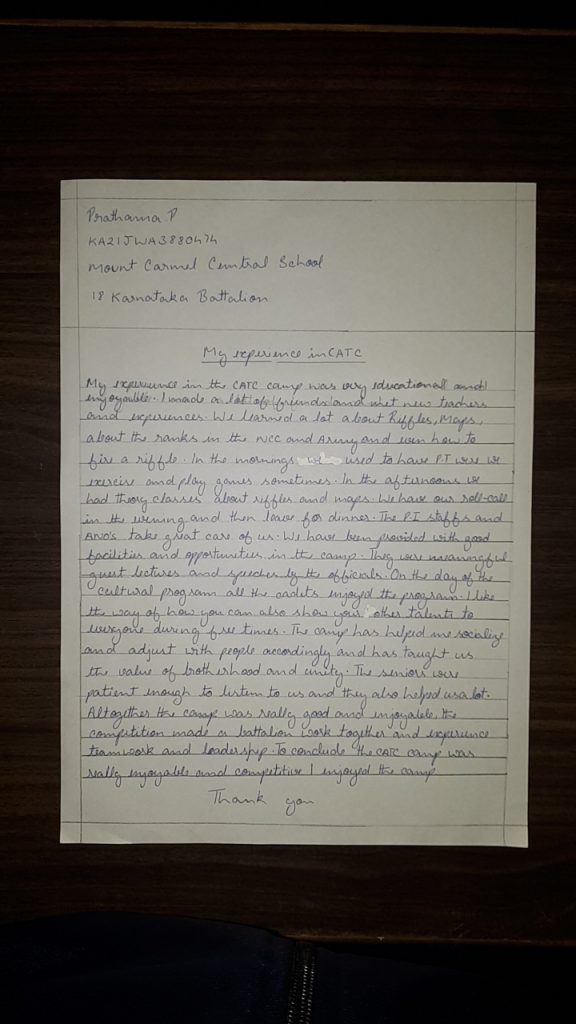 Prathama P
KA21JWA3880474
Mount Carmel Cemtral School
18 Karnataka Battalion
My experience in CATC
My experience in the CATC camp was very educational and
enjoyable. I made a lot of friends and met new teachers
and experiences. We learned a lot about Riffles, Maps,
about the ranks in the NCC and Army and even how to
fire a riffle. In the mornings we used to have P.T were we
exercise and play games sometimes. In the afternoons we
had theory classes about riffles and maps. We have our roll-call
in the evening and then leave for dinner. The P.I staffs and
ANO's take great care of us. We have been provided with good
facilities and opportunities in the camp. They were meaningful
guest lectures and speeches by the officials. On the day of the
cultural program all the cadets enjoyed the program. I like
the way of how you can also show your other talents to
everyone during free times. The camp has helped me socialize
and adjust with people accordingly and has taught us
the value of brotherhood and unity. The seniors were
patient enough to listen to us and they also helped us a lot.
Altogether the camp was really good and enjoyable, the
competition made a battalion work together and experience
teamwork and leadership. To conclude the CATC camp was
really enjoyable and competitive I enjoyed the camp
Thank you